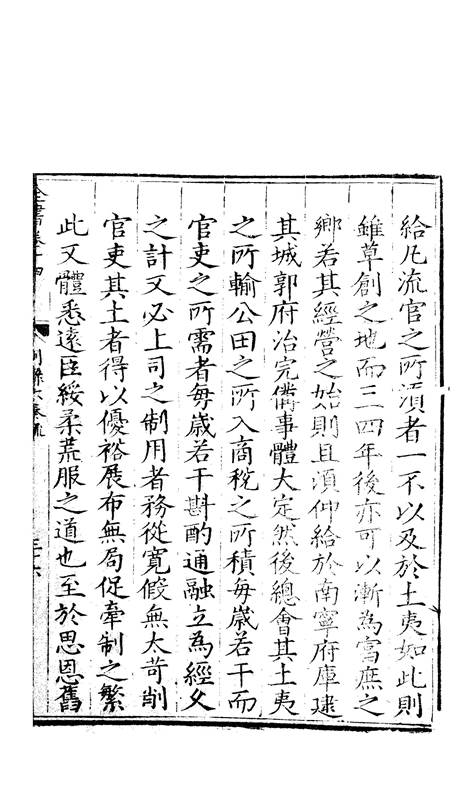 給凡流官之所須者一不以及於土夷如此則
雖草創之地而三四年後亦可以漸為富庶之
鄉若其經營之始則且須仰給於南寧府庫逮
其城郭府治完備事體大定然後總會其土夷
之所輸公田之所入商稅之所積每歲若干而
官吏之所需者每歲若干斟酌通融立為經久
之計又必上司之制用者務從寬假無太苛削
官吏其土者得以優裕展布無局促牽制之繁
此又體悉遠臣綏柔荒服之道也至於思恩舊
全書卷十四 別錄六奏疏 三十六